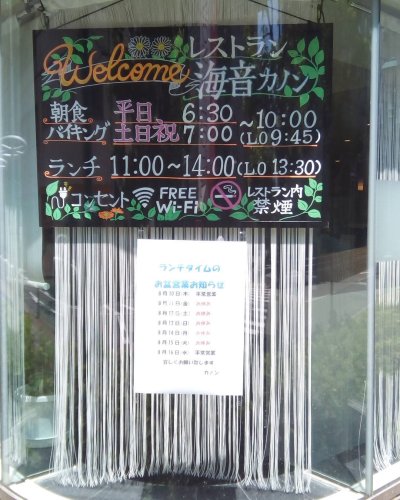 Welcome レストラン
海音カノン
朝食 平日 6:30 ~10:00
バイキング 土日祝 7:00 (LO 9:45)
ランチ 11:00~14:00(LO 13:30)
コンセント FREE Wi-Fi レストラン内 禁煙
ランチタイムの
お盆営業お知らせ
8月10日(木) 平常営業
8月11日(金) お休み
8月12日(土) お休み
8月13日(日) お休み
8月14日(月) お休み
8月15日(火) お休み
8月16日(水) 平常営業
宜しくお願い致します
カノン